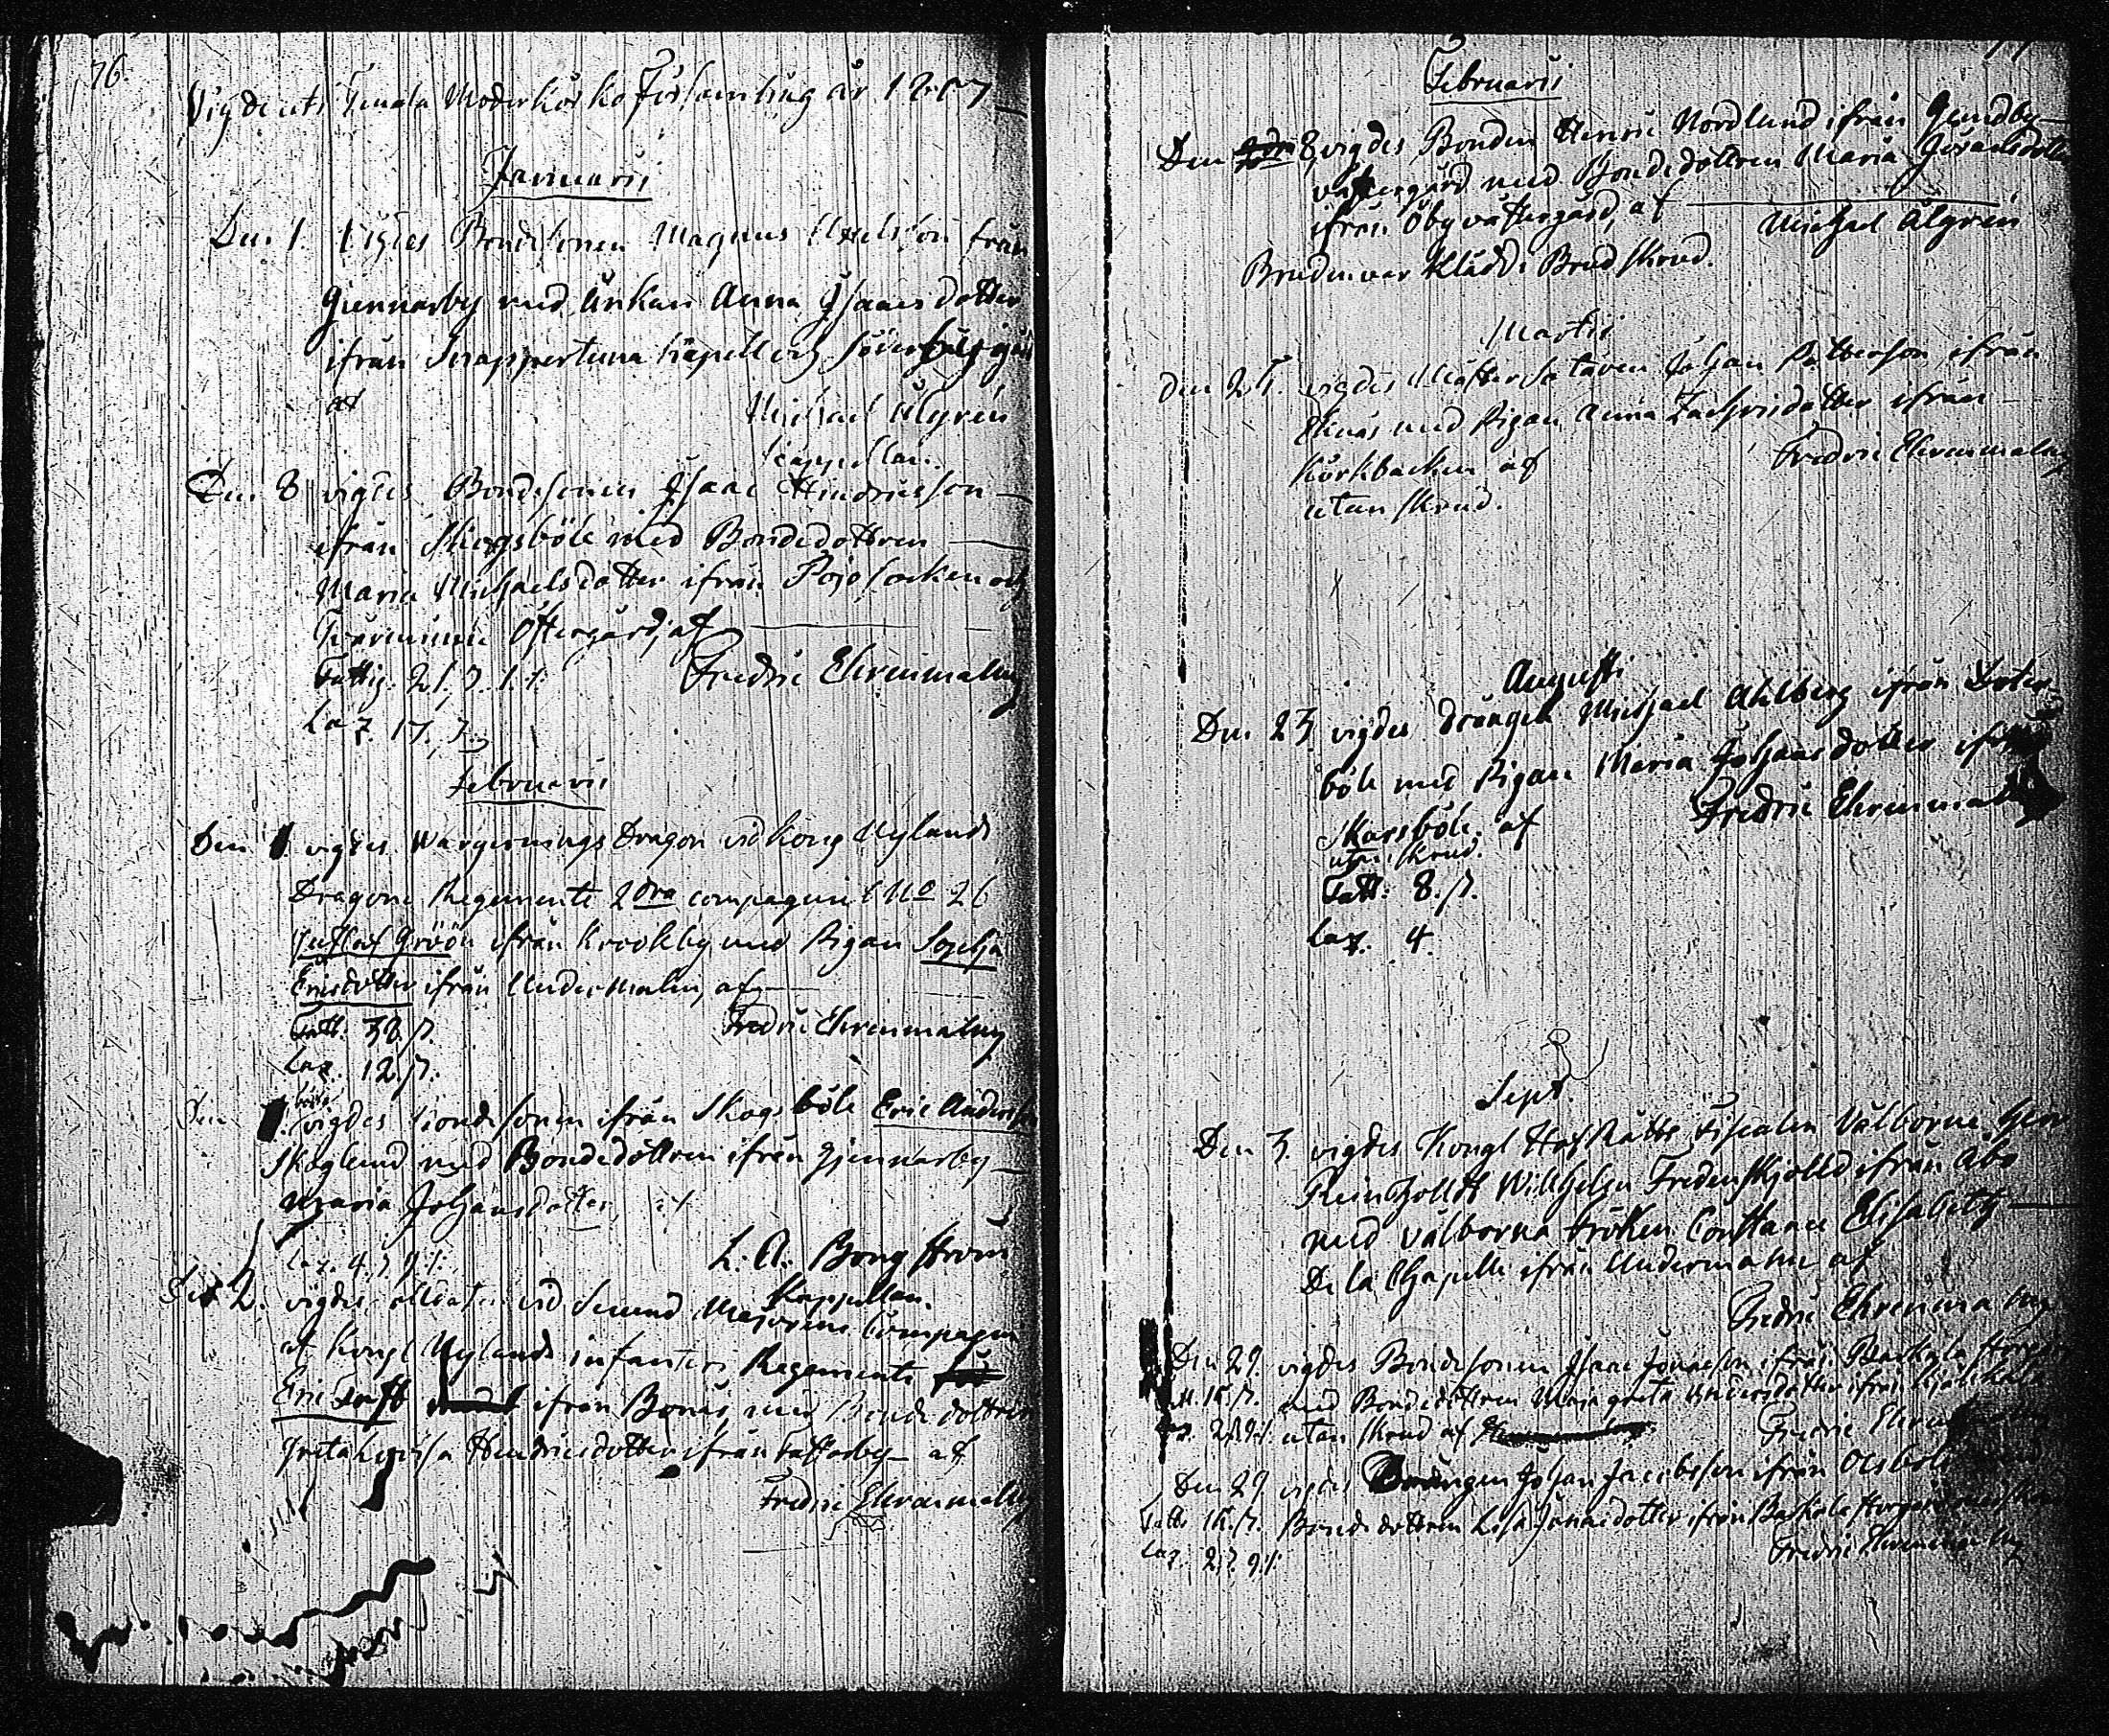 76.
Vigde uti Tenala Moderkörko Församling år 1807
Januarii
Den 1. Vigdes Bondesonen Magnus Axelsson från
Gennarby med Änkan Anna Isaacsdotter
ifrån Snappertuna Capell och
af Michael Algrén
Cappellan.
Den 8 vigdes Bondesonen Isaac Hindricsson
ifrån Skogsböle med Bondedottren
Maria Michaelsdotter ifrån Pojo Socken och
Tvärminne Östergård, af
Fattig. 21. 7. 1.:
Fredric Ehrenmalm
Laz. 17. 7.
Februarii
Den 1. vigdes Wargerings Dragon vid Kong Nylands
Dragone Regemente 2dra compagnie No 26
Gustaf Gröön ifrån Krookby med Pigan Sophja
Ericsdotter ifrån Undermalm, af
Fatt. 38. 7. Fredric Ehrenmalm
Laz. 12. 7.
Den 1. vigdes Bondesonen ifrån Skogsböle Eric Anderss
Skoglund med Bondedottren ifrån Gennarby
Maria Johansdotter
Laz. 4. 7 9. L. A. Bongström
Kappellan.
Den 2. vigdes Soldaten vid Second Majorens Compagni
af Kongl Nylands infanteri Regemente
Eric Saft ifrån Bonäs med Bonde dottren
Greta Lovisa Hendricsdotter ifrån af
Fredric Ehrenmalm
Februarii
Den 8 vigdes Bonden Henric Nordlund ifrån Gundby
västergård med Bondedottren Maria Göransdotter
ifrån Öby västergård, af Michael Algrén
Bruden var klädd i Brudskrud.
Martii
Den 25. vigdes Johan Petterson ifrån
Ekenäs med Pigan Anna Zachrisdotter ifrån
Körkbacken af Fredric Ehrenmalm
utan skrud.
Augusti
Den 23 vigdes drängen Michael Ahlberg ifrån Doter
böle med Pigan Maria Johansdotter ifrån
Skarsböle. af Fredric Ehrenmalm
utan skrud.
Fatt: 8. 7.
Laz. 4.
Sept.
Den 3. vigdes Kongl HofRätts Fiscalen Välborne Herr
Reinholdt Willhelm Fredenskjölld ifrån Åbo
med välborna Fröken Constance Elisabeth
De la Chapelle ifrån Undermalm af
Fredric Ehrenmalm
Den 29. vigdes Bondesonen Isaac Jonasson ifrån Baskala Storgård
Fatt. 15. 7. med Bondedottren Maja greta Andersdotter ifrån
Laz. utan skrud af Fredric Ehrenmalm
Den 29 vigdes Drängen Johan Jacobsson ifrån Olsböle med
Fatt. 15. 7. Bonde dottren Lisa Jonasdotter ifrån Baskala Storgård
Laz. 2. 7. 9. Fredric Ehrenmalm